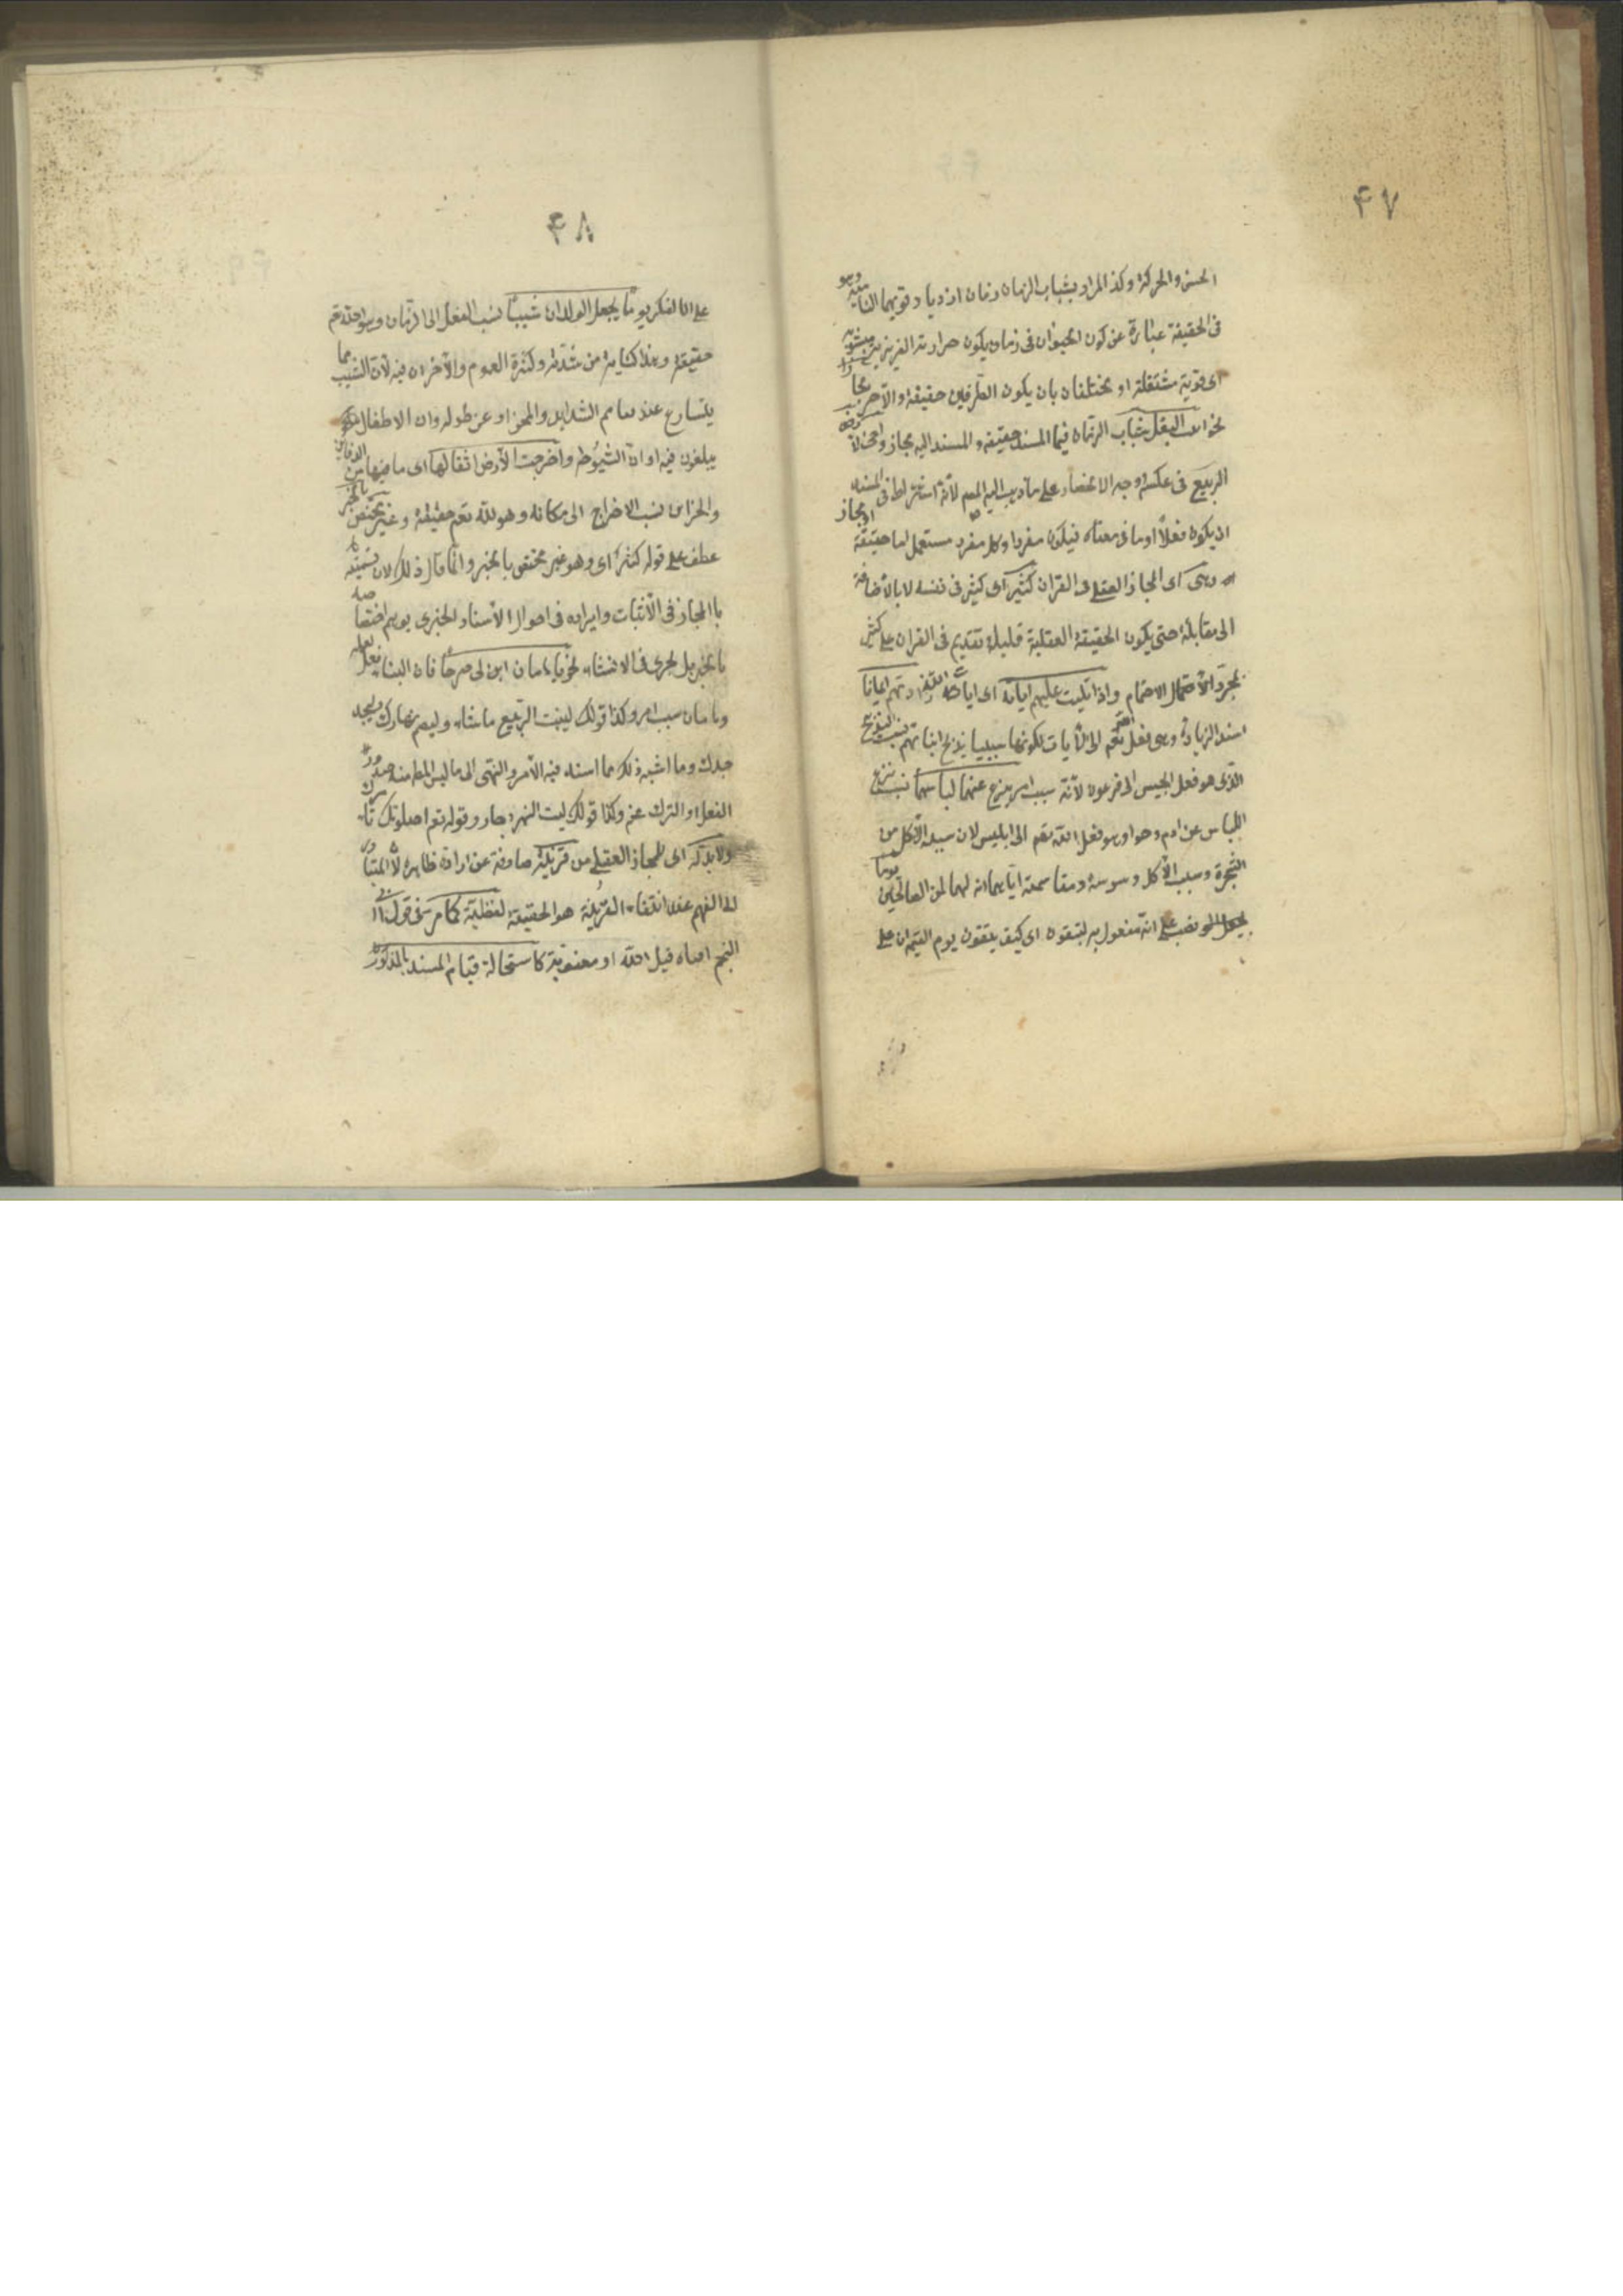 ۴۷
الحس والحركة وكذ المراد بشباب الزمان زمان ازدياد قويها النامية وهو
فى الحقيقة عبارة عن كون الحيوان فى زمان يكون حرارته الغريزية مشبوبة
اى قوية مشتعلة او مختلفان بان يكون الطرفين حقيقة والآخر مجازا
نحو انبت البقل شباب الزمان فيما المسند حقيقة والمسند اليه مجاز واحى الارض
الربيع فى عكسه وجه الانحصار على ما ذهب اليه المصـ لأنه اشترط فى المسند
ان يكون فعلاً او ما فى معناه فيكون مفردا وكل مفرد مستعمل اما حقيقة او مجاز
وهى اى المجاز العقلى فى القران كثير اى كثير فى نفسه لا بالاضافة
الى مقابلة حتى يكون الحقيقة العقلية قليلة تقديم فى القران على كثير
لمجرد الاهتمام واذا تليت عليهم اياته اى ايات الله زادتهم ايمانا
اسند الزيادة وهى فعل الله تعم الى الآيات لكونها سببيا يذبح ابنائهم نسب التذبيح
الذى هو فعل الجيش الى فرعون لأنه سبب امر ينزع عنهما لباسهما نسب نزع
اللباس عن ادم وحوا وهو فعل الله تعم الى ابليس لان سببه الأكل من
الشجرة وسبب الأكل وسوسة ومقاسمته اياهما انه لهما لمن الناصحين يوما
نصب على انه مفعول به لتتقون اى كيف يتقون يوم القيمة ان على
۴۸
على الكفر يوماً يجعل الولدان شيباً نسب الفعل الى الزمان وهو الله تعم
حقيقة وهذا كناية من شدته وكثرة الهموم والاحزان فيه لأن الشيب مما
يتسارع عند تفاقم الشدايد والمحن او عن طوله وان الاطفال
يبلغون فيه اوان الشيوخة واخرجت الأرض اثقالها اى ما فيها من الدفاين
والخزاين نسب الاخراج الى مكانه وهو لله تعم حقيقة وغير مختص بالخبر
عطف على قوله كثير اى وهو غير مختص بالخبر وانما قال ذلك لان تسميته
بالمجاز فى الأثبات وايراده فى احوال الأسناد الخبرى يوهم اختصاصه
بالخبر بل يجرى فى الانشاء نحو ياهامان ابن لى صرحاً فان البناء فعل العملة
وهامان سبب امر وكذا قولك لينبت الربيع ما شاء وليصم نهارك وليجد
جدك وما اشبه ذلك مما اسند فيه الأمر والنهى الى ما ليس المط منه صدور
الفعل او الترك عنه وكذا قولك ليت النهر جار وقوله تعم اصلوتك تأمرك
ولا بد له اى للمجاز العقلى من قرينة صارفة عن ارادة ظاهره لأن المتبادر
الى الفهم عند انتفاء القرينة هو الحقيقة لفظية كما مر فى قول ابى
النجم افناه قيل الله او معنوية كاستحالة قيام المسند بالمذكور